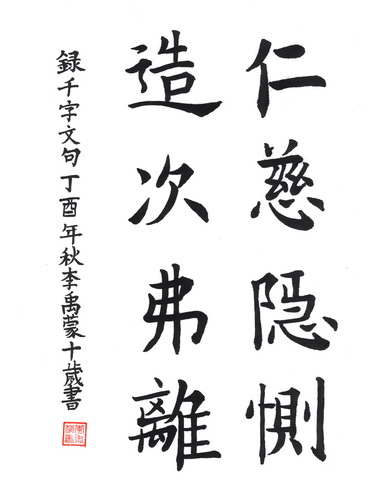 仁慈隐恻
造次弗離
録千字文句丁酉年秋李禹蒙十歳書